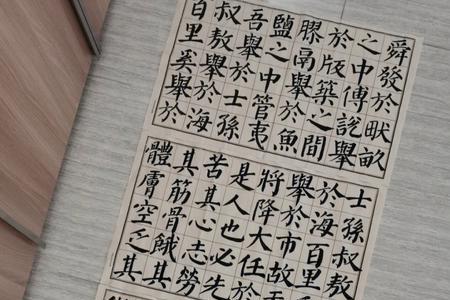 舜發於畎畝
之中傅說舉
於版築之間
膠鬲舉於魚
鹽之中管夷
吾舉於士孫
叔敖舉於海
百里奚舉於
士孫叔敖
於海百里
舉於市故
將降大任於
是人也必先
苦其心志勞
其筋骨餓其
體膚空乏其